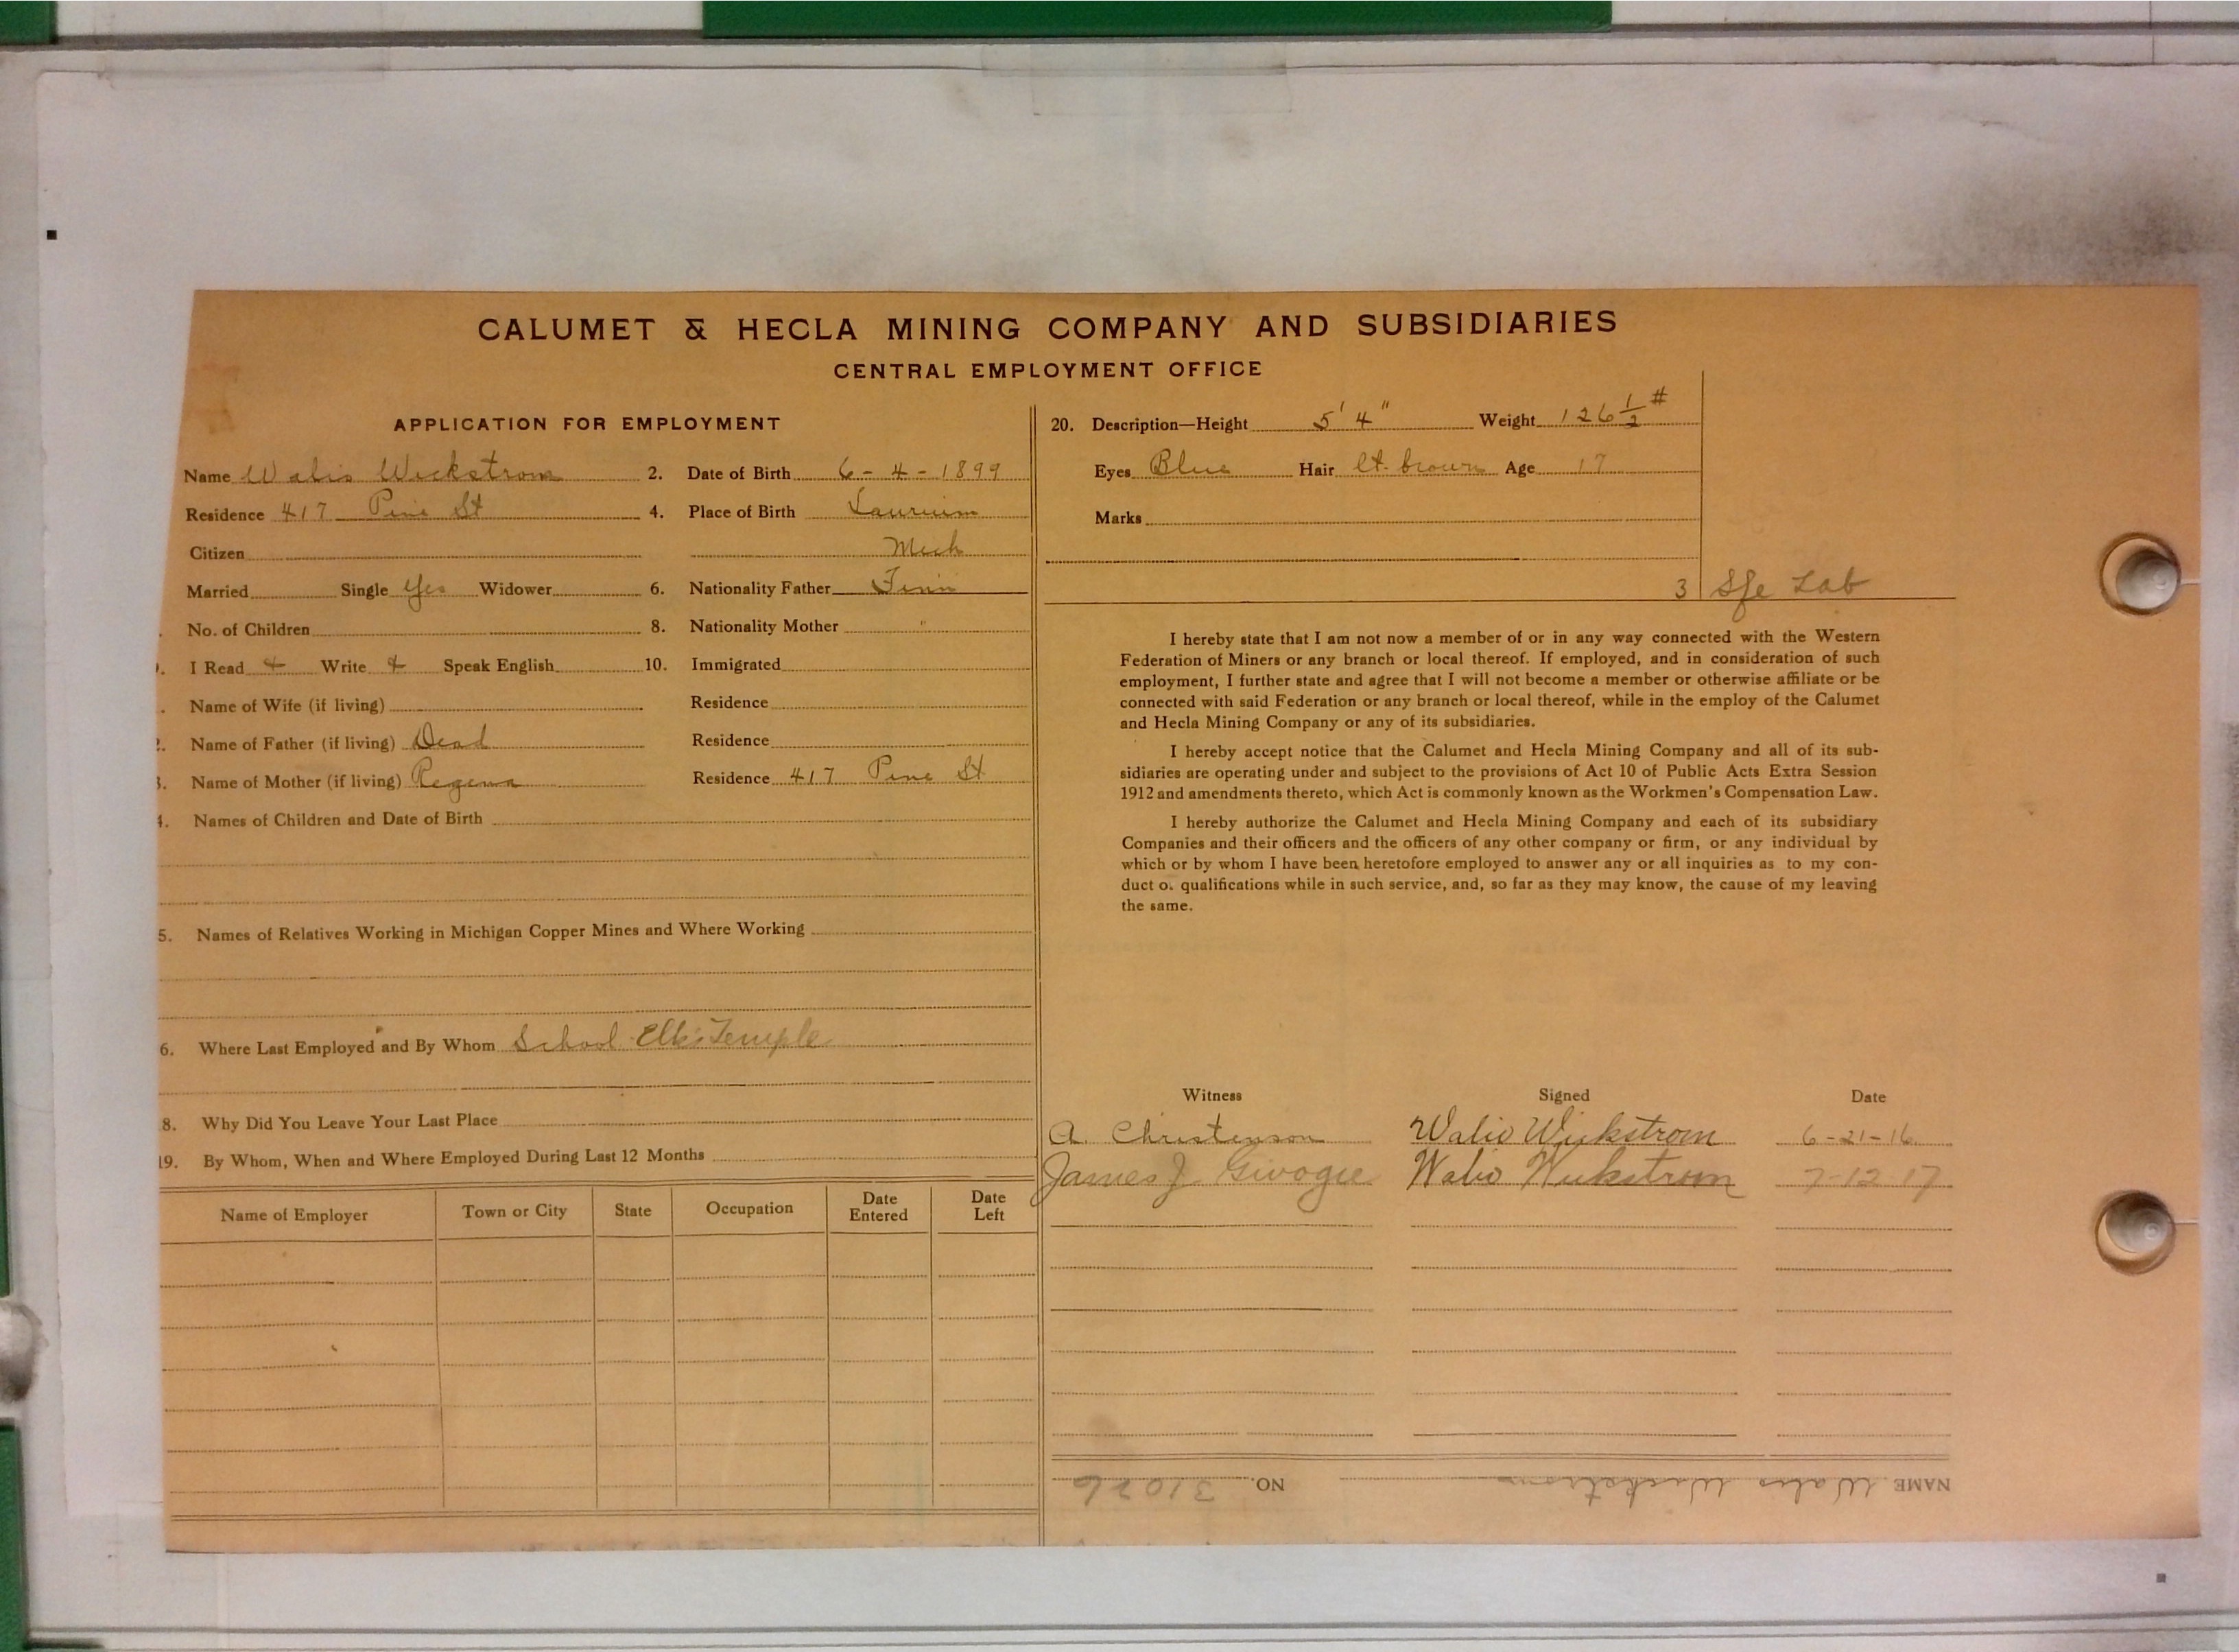 CALUMET & HECLA MINING COMPANY AND SUBSIDIARIES
CENTRAL EMPLOYMENT OFFICE
APPLICATION FOR EMPLOYMENT
Name Walio Wickstrom 2. Date of Birth 6-4-1899
Residence 417 Pine St 4. Place of Birth Laurium
Citizen Mich
Married Single Yes Widower 6. Nationality Father Finn
No. of Children 8. Nationality Mother "
I Read + Write + Speak English 10. Immigrated
Name of Wife (if living) Residence
Name of Father (if living) Dead Residence
Name of Mother (if living) Regena Residence 417 Pine St
4. Names of Children and Date of Birth
5. Names of Relatives Working in Michigan Copper Mines and Where Working
6. Where Last Employed and By Whom School Elk's Temple
8. Why Did You Leave Your Last Place
19. By Whom, When and Where Employed During Last 12 Months
Name of Employer Town or City State Occupation Date Entered Date Left
20. Description—Height 5' 4" Weight 126 1/2 #
Eyes Blue Hair lt. brown Age 17
Marks
3 Sfe Lab
I hereby state that I am not now a member of or in any way connected with the Western
Federation of Miners or any branch or local thereof. If employed, and in consideration of such
employment, I further state and agree that I will not become a member or otherwise affiliate or be
connected with said Federation or any branch or local thereof, while in the employ of the Calumet
and Hecla Mining Company or any of its subsidiaries.
I hereby accept notice that the Calumet and Hecla Mining Company and all of its sub-
sidiaries are operating under and subject to the provisions of Act 10 of Public Acts Extra Session
1912 and amendments thereto, which Act is commonly known as the Workmen's Compensation Law.
I hereby authorize the Calumet and Hecla Mining Company and each of its subsidiary
Companies and their officers and the officers of any other company or firm, or any individual by
which or by whom I have been heretofore employed to answer any or all inquiries as to my con-
duct o. qualifications while in such service, and, so far as they may know, the cause of my leaving
the same.
Witness Signed Date
A. Christenson Walio Wickstrom 6-21-16
James J. Walio Wickstrom 7-12-17
NAME Walio Wickstrom NO. 31026